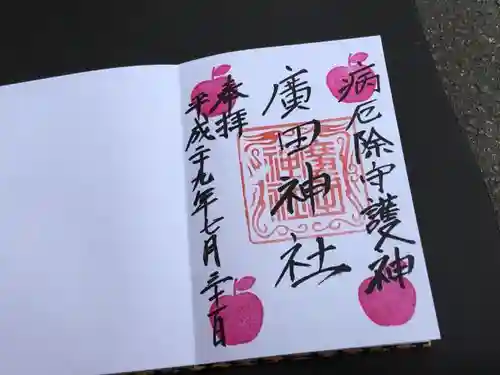 病厄除守護神
廣田神社
奉拝
平成二十九年七月二十二日